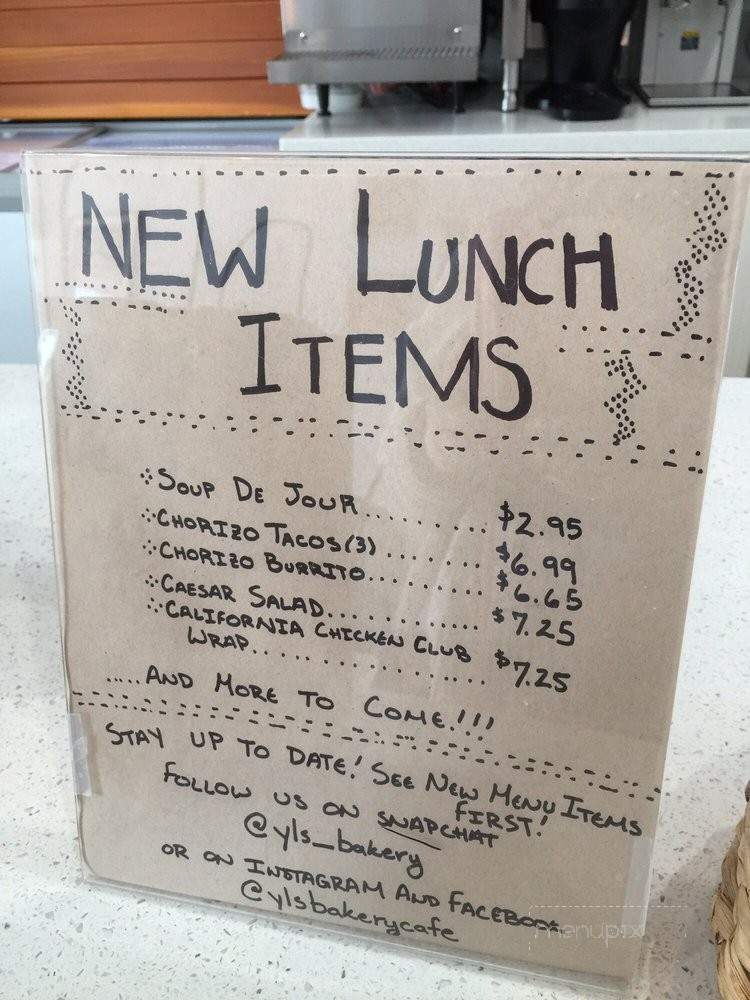 NEW LUNCH
ITEMS
SOUP DE JOUR.......... $2.95
CHORIZO TACOS(3)....... $6.99
CHORIZO BURRITO......... $6.65
CAESAR SALAD............ $7.25
CALIFORNIA CHICKEN CLUB
WRAP................ $7.25
.....AND MORE TO COME!!!
STAY UP TO DATE! SEE NEW MENU ITEMS
FIRST!
FOLLOW US ON SNAPCHAT
@yls_bakery
OR ON INSTAGRAM AND FACEBOOK
@ylsbakerycafe
menupix